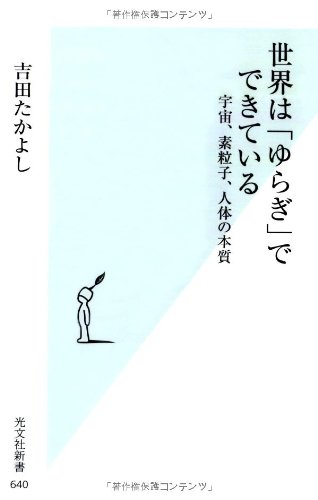 「著作権保護コンテンツ」
世界は「ゆらぎ」で
できている
宇宙、素粒子、人体の本質
吉田たかよし
光文社新書
640
「著作権保護コンテンツ」